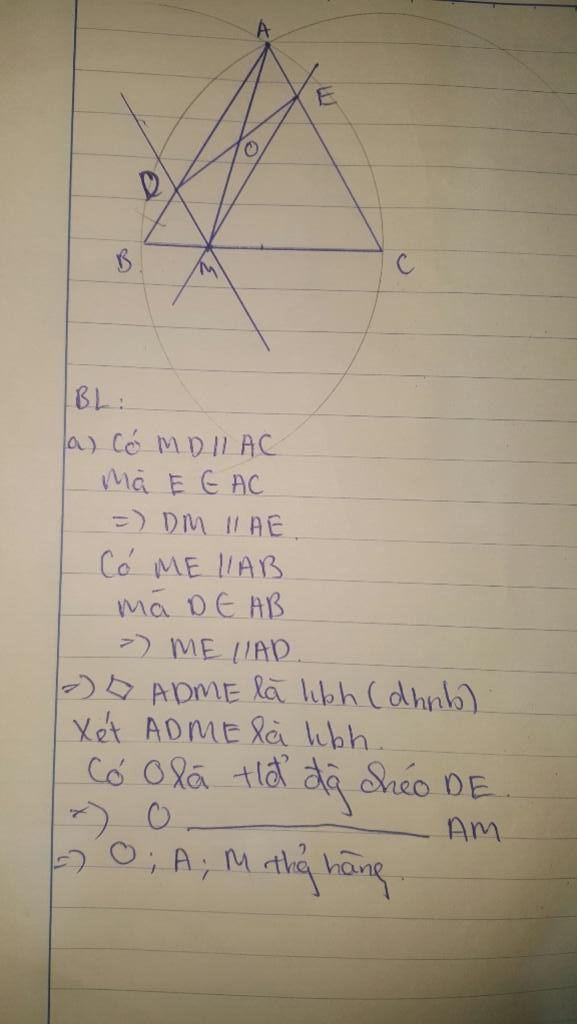 A
E
O
D
B
M
C
BL:
a) Có MD // AC
mà E ∈ AC
=) DM // AE.
Có ME // AB
mà D ∈ AB
=) ME // AD.
=) ▱ ADME là hbh (dhnb)
Xét ADME là hbh.
Có O là tđ đg chéo DE.
=) O ________ AM
=) O; A; M thg hàng.